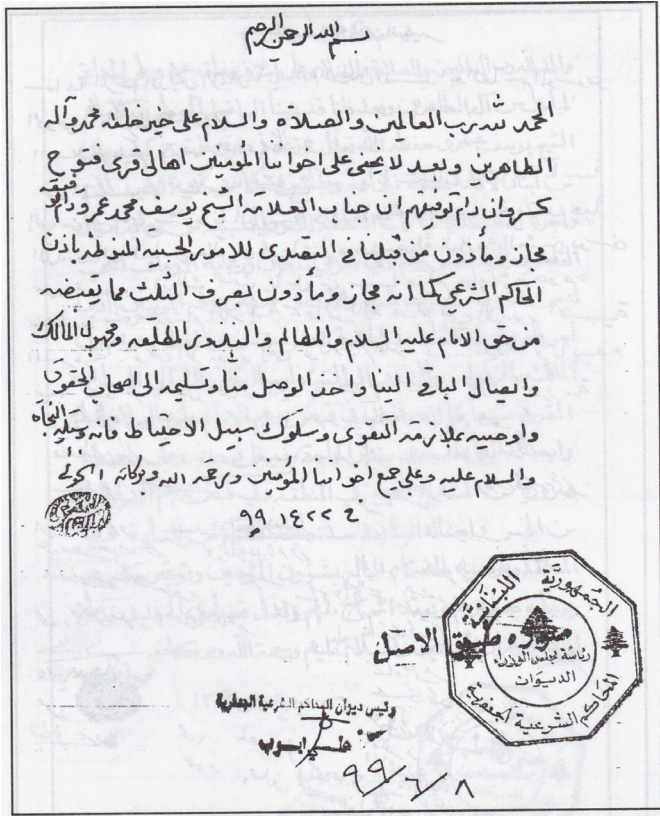 بسم الله الرحمن الرحيم
الحمد لله رب العالمين والصلاة والسلام على خير خلقه محمد وآله
الطاهرين وبعد لا يخفى على اخواننا المؤمنين اهالي قرى فتوح
كسروان زاد توفيقهم ان جناب العلامة الشيخ يوسف محمد عمرو
مجاز ومأذون من قبلنا في التصدي للامور الحسبية المنوطة باذن
الحاكم الشرعي كما انه مجاز ومأذون بصرف الثلث مما يقبضه
من حق الامام عليه السلام والمظالم والنذور المطلقة ومجهول المالك
وايصال الباقي الينا واخذ الوصل منا وتسليمه الى اصحاب الحقوق
واوصيه بملازمة التقوى وسلوك سبيل الاحتياط فانه سبيل النجاة
والسلام عليه وعلى جميع اخواننا المؤمنين ورحمة الله وبركاته الخوئي
الجمهورية اللبنانية
رئاسة مجلس الوزراء
الديوان
المحاكم الشرعية الجعفرية
صورة طبق الاصل
رئيس ديوان المحاكم الشرعية الجعفرية
علي ايوب
٩٩/٦/٨